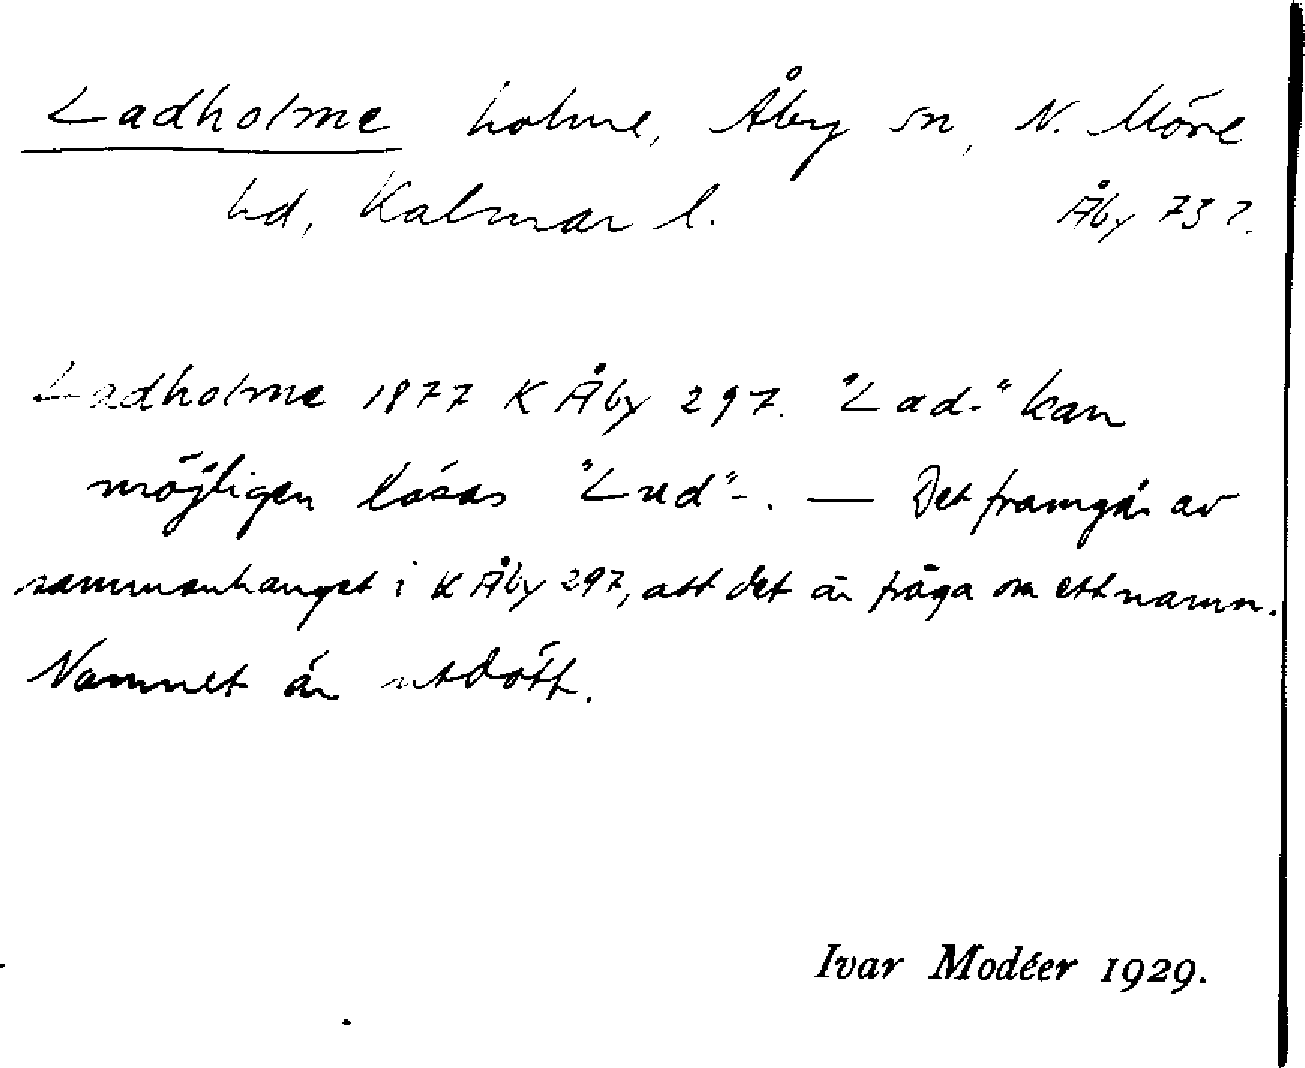 Ladholme holme, Åby sn, N. Möre
hd, Kalmar l. Åby 73?.
Ladholme 1877 K Åby 297. "Lad-" kan
möjligen läsas "Lud"-. — Det framgår av
sammanhanget i K Åby 297, att det är fråga om ett namn.
Namnet är utdött.
Ivar Modéer 1929.